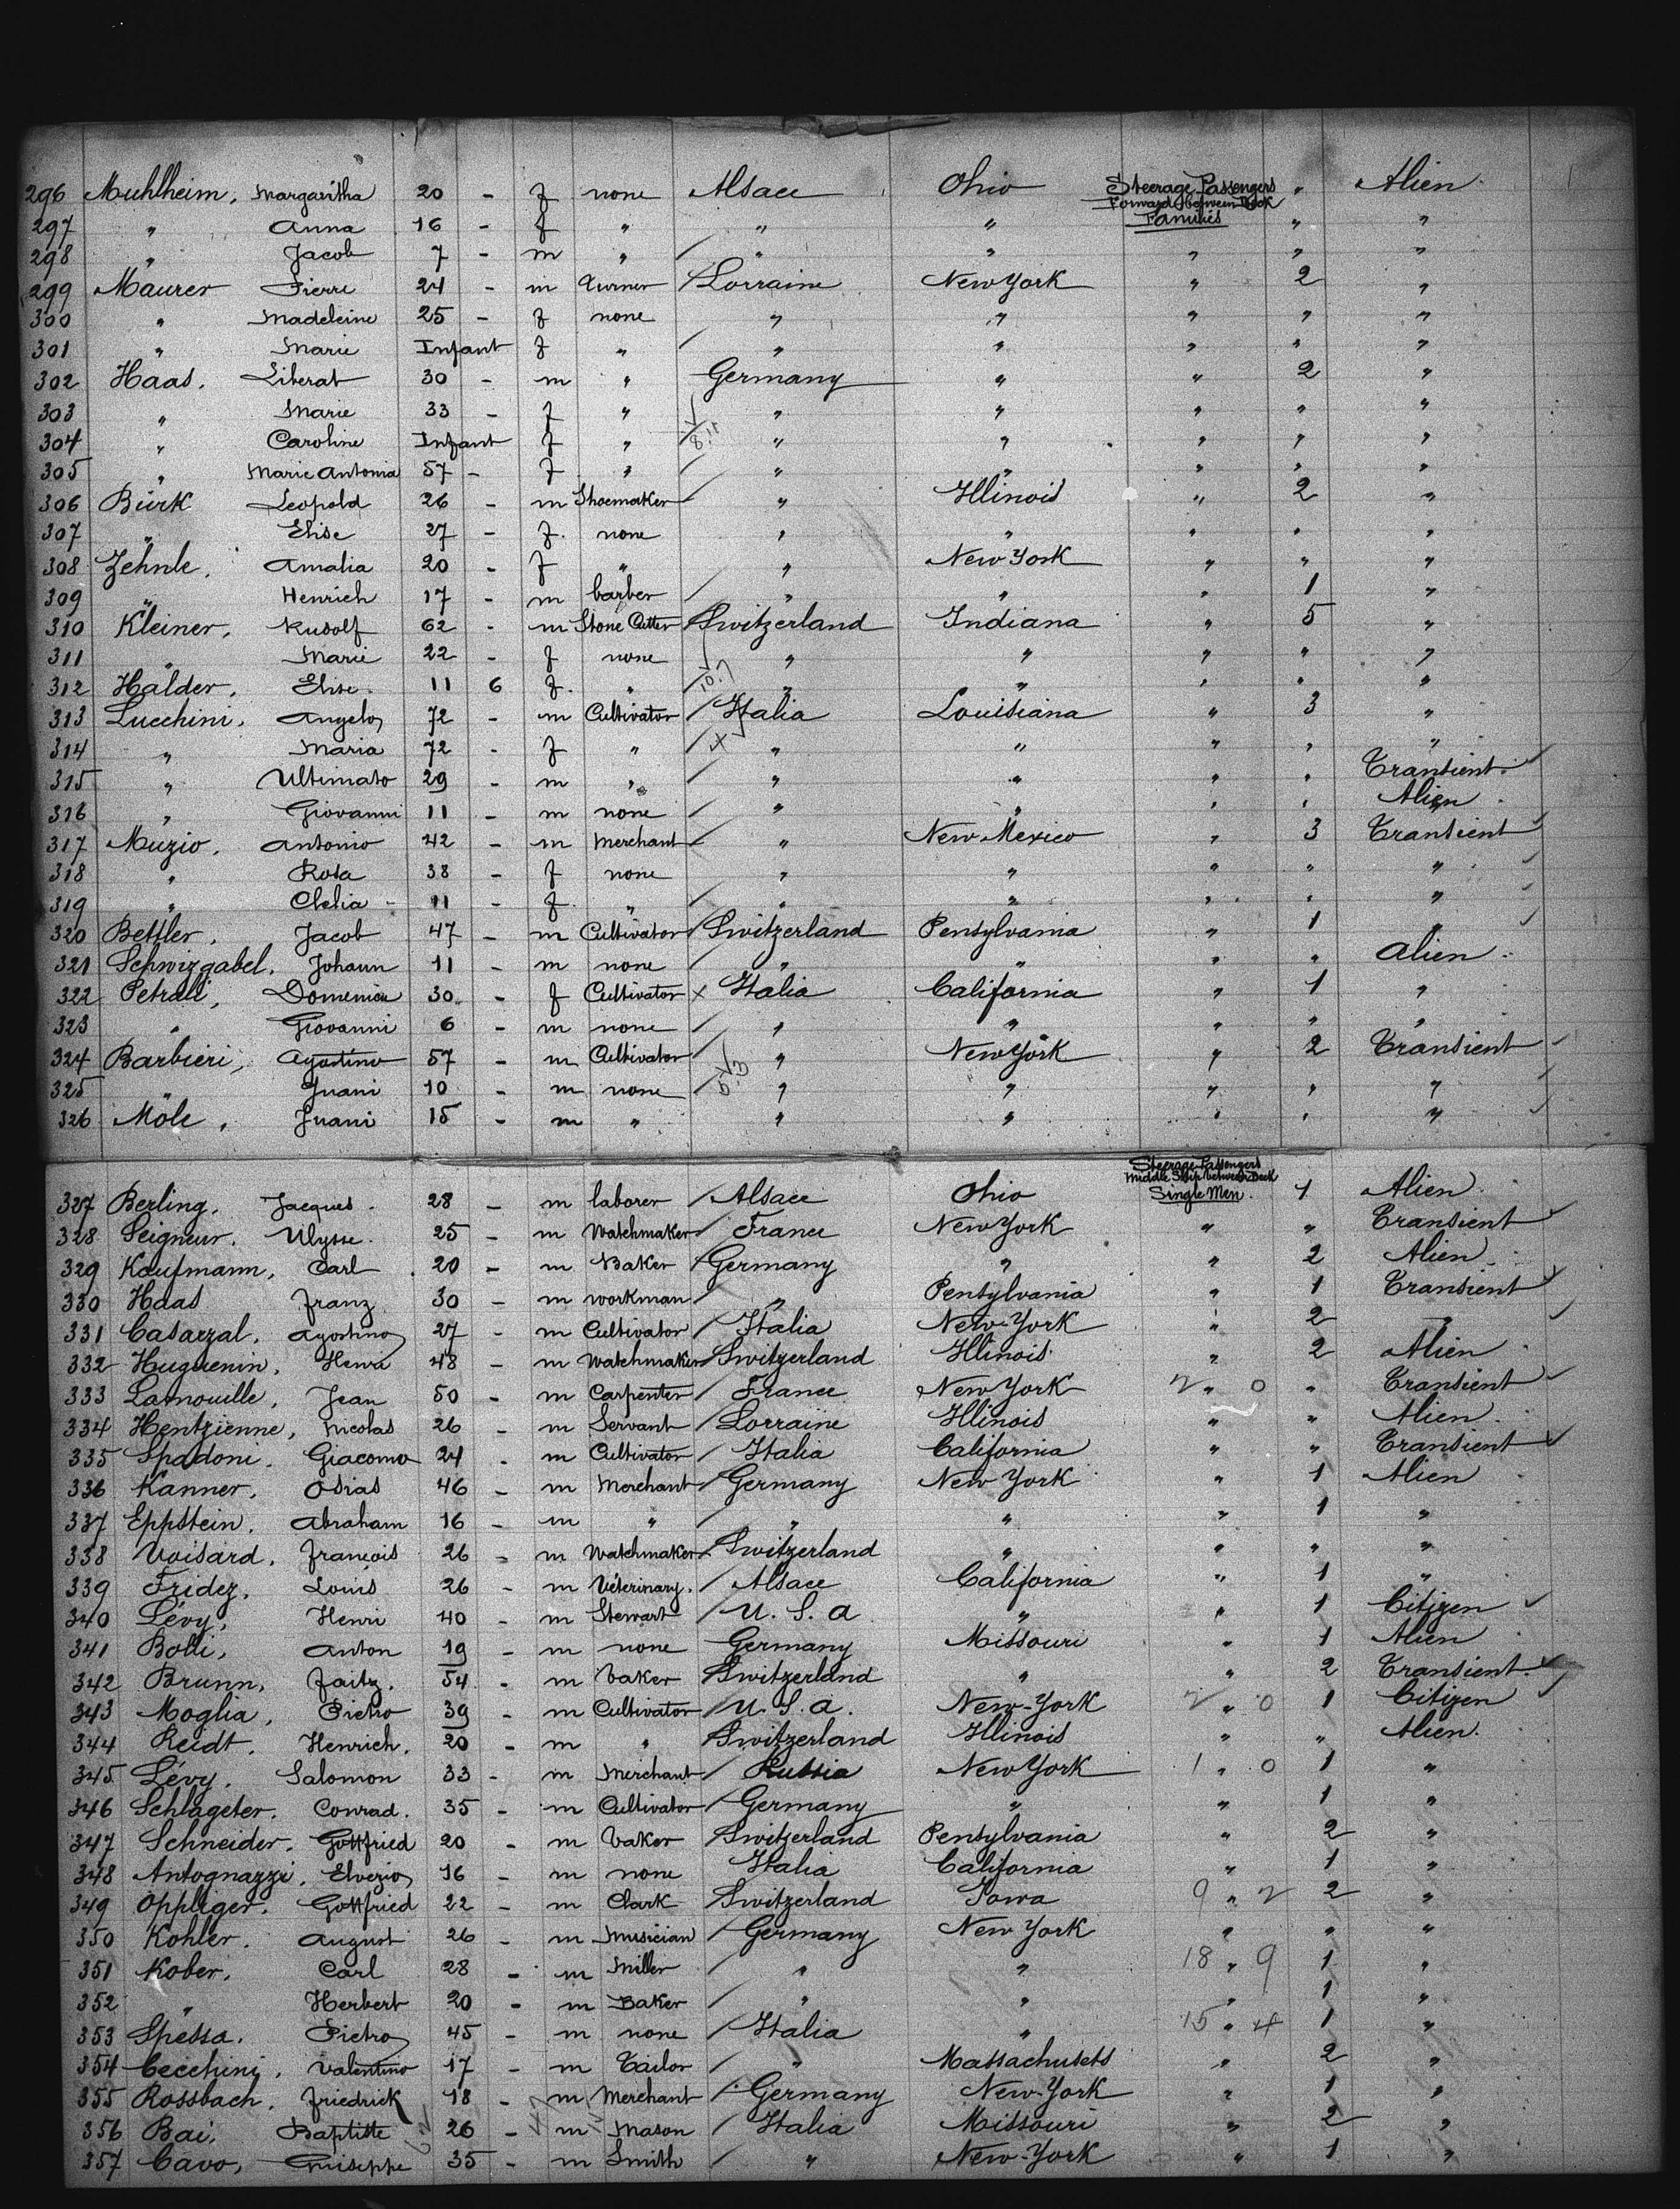 296 Muhlheim, Margaritha 20 - f none Alsace Ohio Steerage Passengers Forward between Deck Families " Alien
297 " Anna 16 - f " " " " " "
298 " Jacob 7 - m " " " " " "
299 Maurer Pierre 24 - m turner Lorraine New York " 2 "
300 " Madeleine 25 - f none " " " " "
301 " Marie Infant f " " " " " "
302 Haas, Liberat 30 - m " Germany " " 2 "
303 " Marie 33 - f " " " " " "
304 " Caroline Infant f " " " " " "
305 " Marie Antonia 57 - f " " " " " "
306 Bürk Leopold 26 - m Shoemaker " Illinois " 2 "
307 " Elise 27 - f. none " " " " "
308 Zehnle, Amalia 20 - f " " New York " " "
309 " Henrich 17 - m barber " " " 1 "
310 Kleiner, Rudolf 62 - m Stone Cutter Switzerland Indiana " 5 "
311 " Marie 22 - f none " " " " "
312 Halder, Elise 11 6 f. " " " " " "
313 Lucchini, Angelo 72 - m Cultivator Italia Louisiana " 3 "
314 " Maria 72 - f " " " " " "
315 " Ultimato 29 - m " " " " " Transient
316 " Giovanni 11 - m none " " " " Alien
317 Muzio, Antonio 42 - m Merchant " New Mexico " 3 Transient
318 " Rosa 38 - f none " " " " "
319 " Clelia 11 - f. " " " " " "
320 Bettler, Jacob 47 - m Cultivator Switzerland Pensylvania " 1 "
321 Schwizgabel, Johann 11 - m none " " " " Alien
322 Petrali, Domenica 30 - f Cultivator Italia California " 1 "
323 " Giovanni 6 - m none " " " " "
324 Barbieri, Agostino 57 - m Cultivator " New York " 2 Transient
325 " Juani 10 - m none " " " " "
326 Möle, Juani 15 - m " " " " " "
327 Berling, Jacques 28 - m laborer Alsace Ohio Steerage Passengers Middle Ship between Deck Single Men. 1 Alien
328 Seigneur, Ulysse 25 - m Watchmaker France New York " " Transient
329 Kaufmann, Carl 20 - m Baker Germany " " 2 Alien
330 Haas Franz 30 - m workman " Pensylvania " 1 Transient
331 Casaczal, Agostino 27 - m Cultivator Italia New-York " 2 "
332 Huguenin, Henri 48 - m Watchmaker Switzerland Illinois " 2 Alien
333 Lamouille, Jean 50 - m Carpenter France New York 2 " 0 " Transient
334 Hentzienne, Nicolas 26 - m Servant Lorraine Illinois " " Alien
335 Spadoni, Giacomo 24 - m Cultivator Italia California " " Transient
336 Kanner, Osias 46 - m Merchant Germany New York " 1 Alien
337 Eppstein, Abraham 16 - m " " " " 1 "
338 Voisard, François 26 - m Watchmaker Switzerland " " " "
339 Fridez, Louis 26 - m Veterinary Alsace California " 1 "
340 Lévy, Henri 40 - m Stewart U. S. a " " 1 Citizen
341 Bolli, Anton 19 - m none Germany Missouri " 1 Alien
342 Brunn, Faitz. 54 - m baker Switzerland " " 2 Transient
343 Moglia, Pietro 39 - m Cultivator U. S. a. New-York 2 " 0 1 Citizen
344 Reidt, Henrich, 20 - m " Switzerland Illinois " " Alien
345 Lévy, Salomon 33 - m Merchant Russia New York 1 " 0 1 "
346 Schlageter, Conrad. 35 - m Cultivator Germany " " 1 "
347 Schneider, Gottfried 20 - m baker Switzerland Pensylvania " 2 "
348 Antognazzi, Elvezio 16 - m none Italia California " 1 "
349 Oppliger, Gottfried 22 - m Clark Switzerland Iowa 9 " 2 2 "
350 Kohler, August 26 - m Musician Germany New York " " "
351 Kober, Carl 28 - m Miller " " 18 " 9 1 "
352 " Herbert 20 - m Baker " " " 1 "
353 Spessa, Pietro 45 - m none Italia " 15 " 4 1 "
354 Cecchini, Valentino 17 - m Tailor " Massachusets " 2 "
355 Rossbach, Friedrick 18 - m Merchant Germany New-York " 1 "
356 Bai, Baptiste 26 - m Mason Italia Missouri " 2 "
357 Cavo, Guiseppe 35 - m Smith " New-York " 1 "